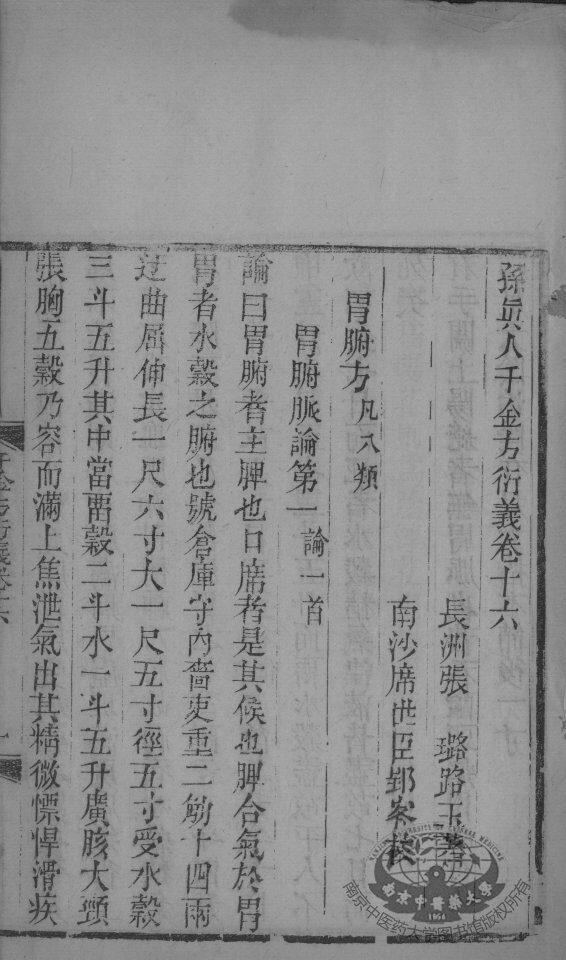 孫眞人千金方衍義卷十六
長洲張 璐路玉著
南沙席世臣郢客校
胃腑方凡八類
胃腑脈論第一 論一首
論曰胃腑者主脾也口唇者是其候也脾合氣於胃
胃者水穀之腑也號倉庫守內嗇吏重二觔十四兩
迂曲屈伸長一尺六寸大一尺五寸徑五寸受水穀
三斗五升其中當畱穀二斗水一斗五升廣胲大頸
張胸五穀乃容而滿上焦泄氣出其精微慓悍滑疾
南京中醫藥大學
1954
南京中医药大学图书馆版权所有